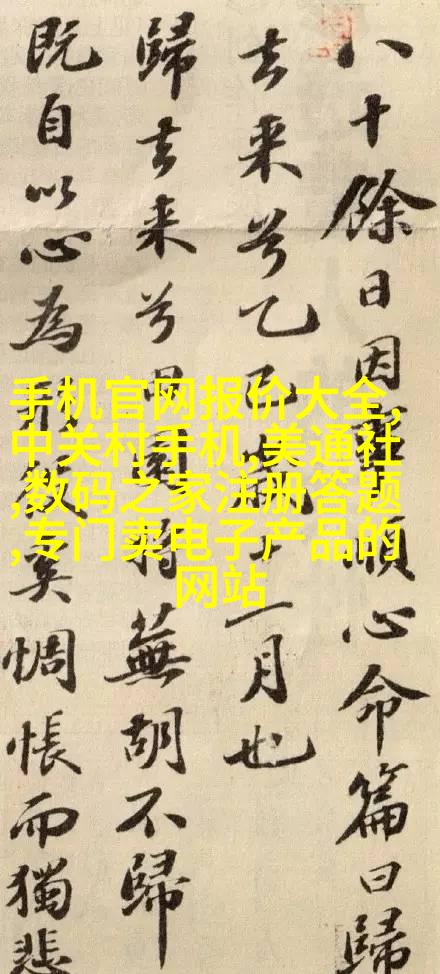 八十餘日因事順心命篇曰歸
去来兮乙巳歲十一月也
歸去来兮田園将蕪胡不歸
既自以心為形役奚惆悵而獨悲
手机官网报价大全,
中关村手机,美通社
,数码之家注册答题
,专门卖电子产品的
网站